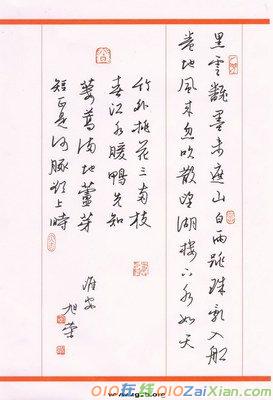 黑雲翻墨未遮山白雨跳珠乱入船
卷地風来忽吹散望湖樓下水如天
竹外桃花三两枝
春江水暖鴨先知
蔞蒿满地蘆芽
短正是河豚欲上時
淮安
旭荣
010在线010ZaiXian.com